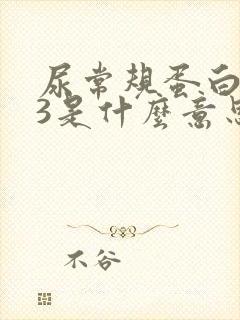 尿常规蛋白
3是什麼意思
不谷